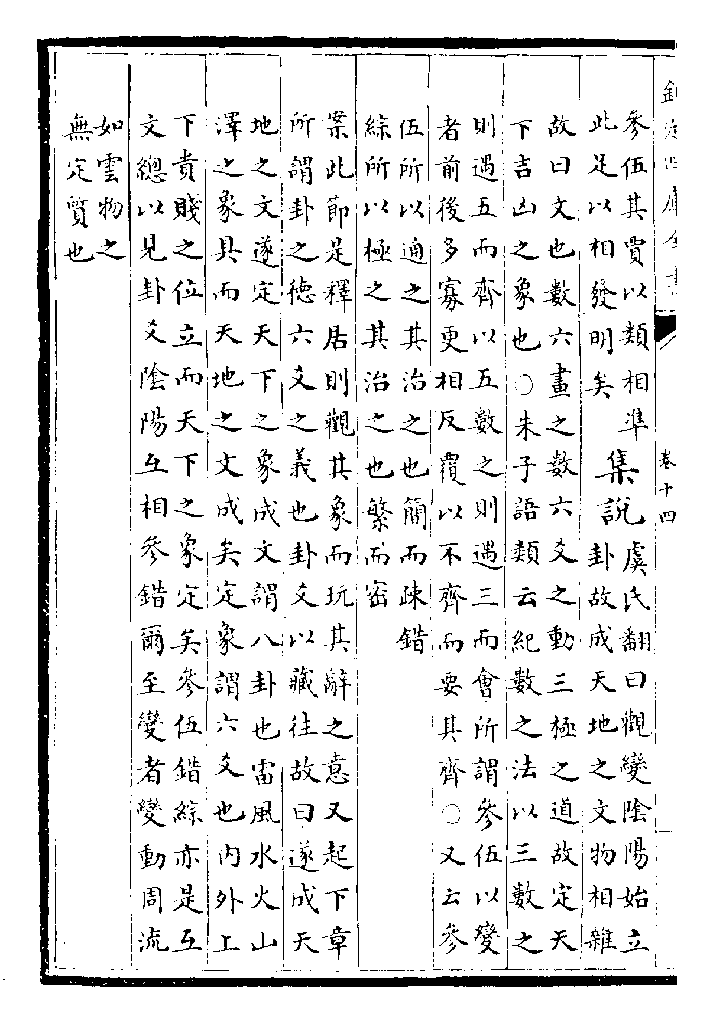 欽定四庫全書
卷十四
參伍其賈以類相準
此足以相發明矣
集說
虞氏翻曰觀變陰陽始立
卦故成天地之文物相雜
故曰文也數六畫之數六爻之動三極之道故定天
下吉凶之象也○朱子語類云紀數之法以三數之
則遇五而齊以五數之則遇三而會所謂參伍以變
者前後多寡更相反覆以不齊而要其齊○又云參
伍所以通之其治之也簡而疎錯
綜所以極之其治之也繁而密
案此節是釋居則觀其象而玩其辭之意又起下章
所謂卦之德六爻之義也卦爻以藏往故曰遂成天
地之文遂定天下之象成文謂八卦也雷風水火山
澤之象具而天地之文成矣定象謂六爻也內外上
下貴賤之位立而天下之象定矣參伍錯綜亦是互
文總以見卦爻陰陽互相參錯爾至變者變動周流
如雲物之
無定質也